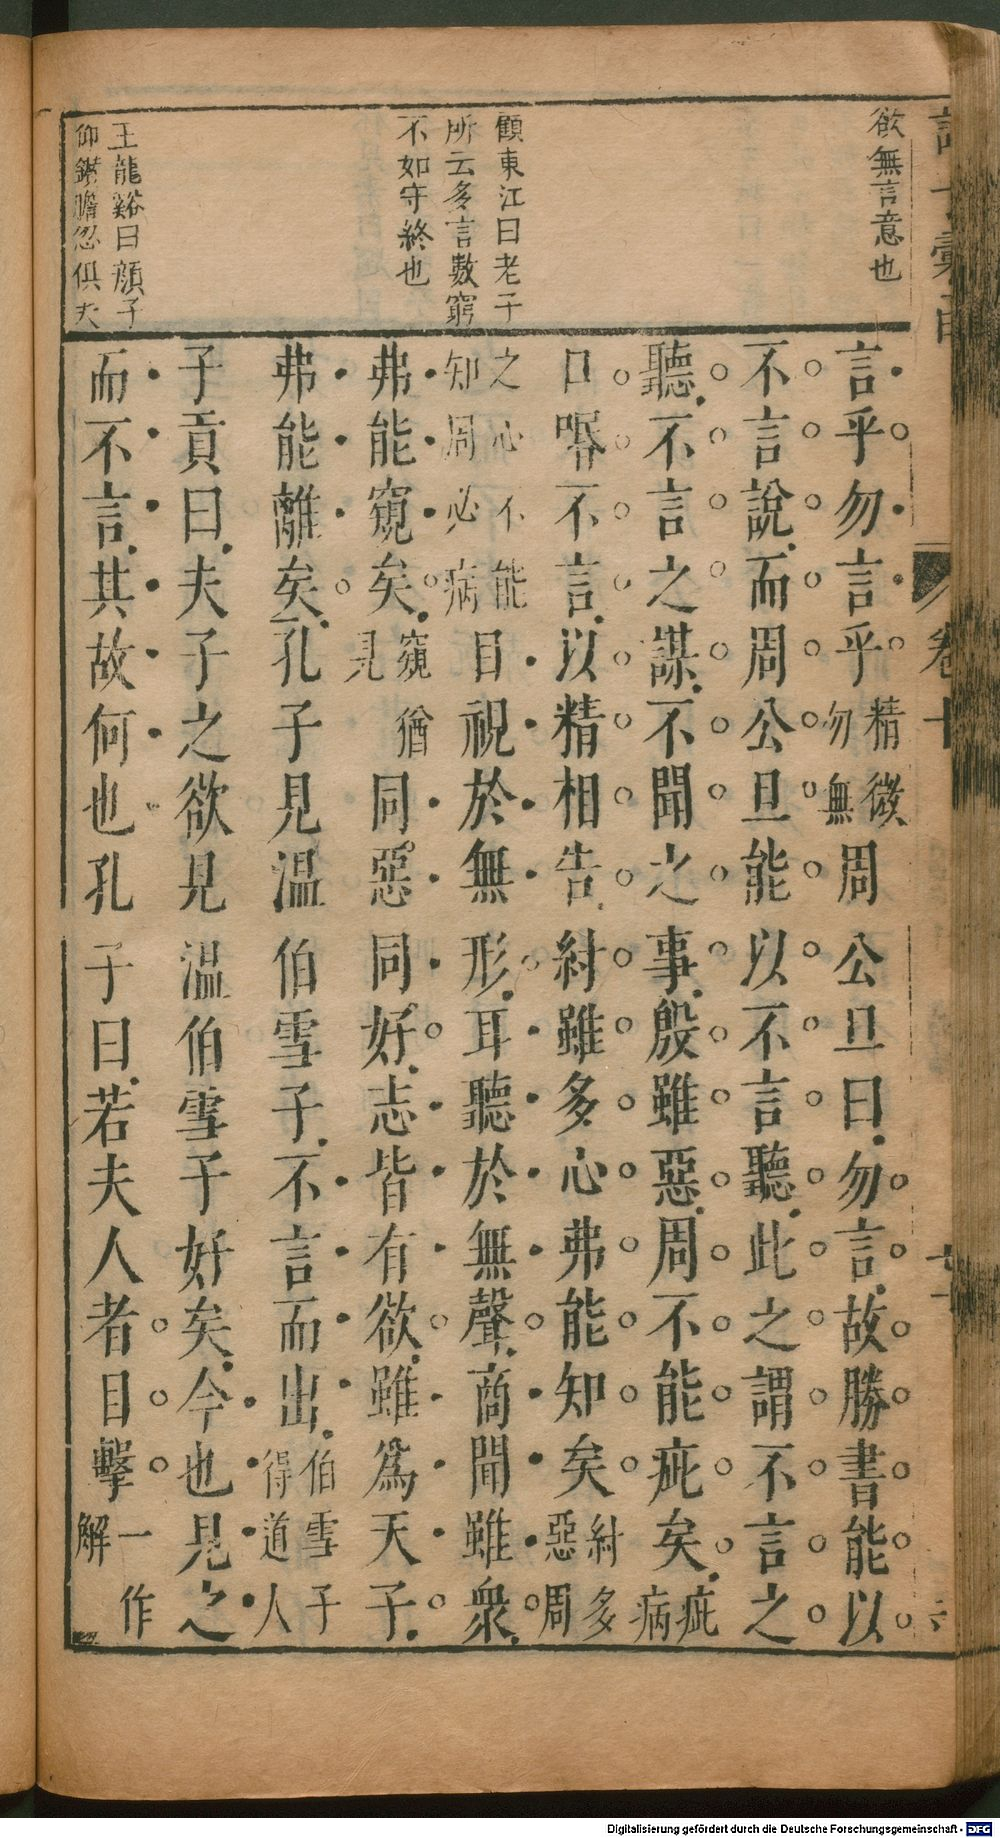 欲無言意也
顧東江曰老子
所云多言數窮
不如守終也
王龍谿曰顏子
仰鑽瞻忽俱夫
言乎勿言乎精微勿無周公旦曰勿言故勝書能以
不言說而周公旦能以不言聽此之謂不言之
聽不言之謀不聞之事殷雖惡周不能疵矣疵病
口㖧不言以精相告紂雖多心弗能知矣紂多惡周
之心不能知周必病目視於無形耳聽於無聲商聞雖衆
弗能窺矣窺猶見同惡同好志皆有欲雖爲天子
弗能離矣孔子見温伯雪子不言而出伯雪子得道人
子貢曰夫子之欲見温伯雪子好矣今也見之
而不言其故何也孔子曰若夫人者目擊一作解
卷十
Digitalisierung gefördert durch die Deutsche Forschungsgemeinschaft - DFG